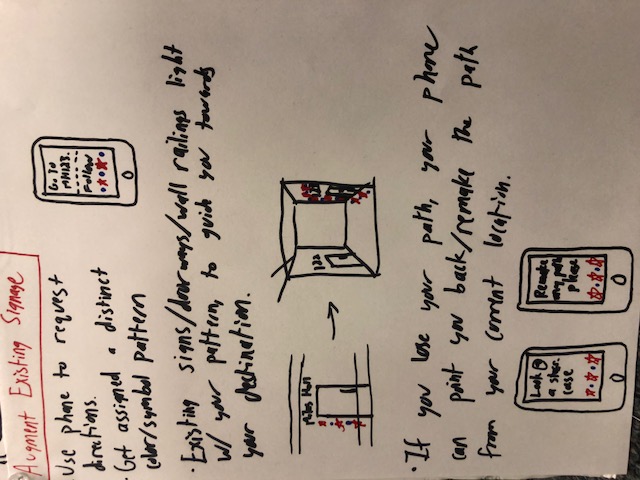 Augment Existing Signage
Use phone to request
directions.
· Get assigned a distinct
color/symbol pattern
Go To
MH123.
Follow
· Existing signs/doorways/wall railings light
w/ your pattern, to guide you towards
your destination.
Miles Hall
122
123
· If you lose your path, your phone
can point you back/remake the path
from your current location.
Look @
a stair
case
Remake
my path
please